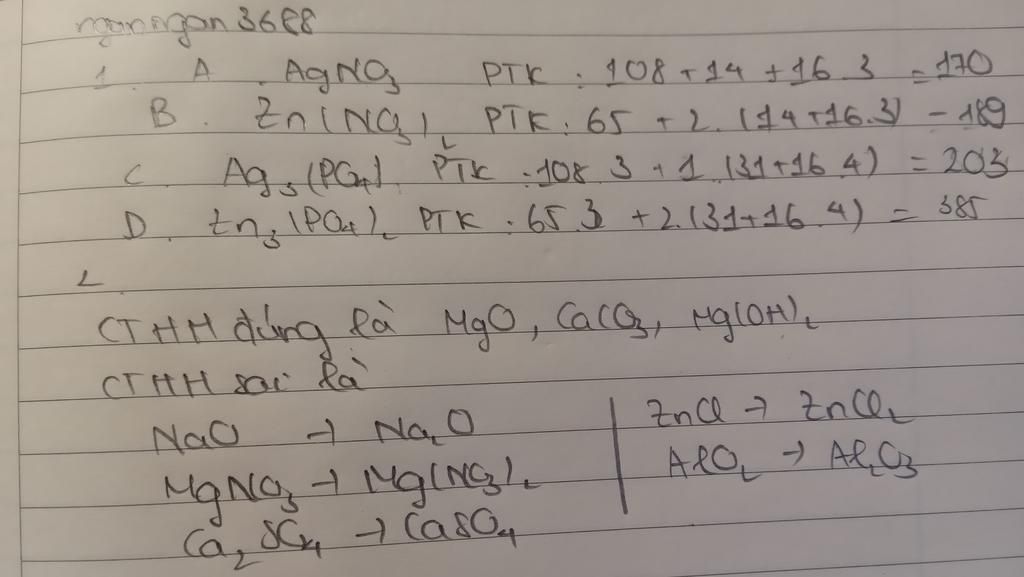 nganngan3688
1. A. AgNO3 PTK : 108 + 14 + 16.3 = 170
B. Zn(NO3)2 PTK : 65 + 2.(14+16.3) = 189
C. Ag3(PO4) PTK : 108.3 + 1.(31+16.4) = 203
D. Zn3(PO4)2 PTK : 65.3 + 2.(31+16.4) = 385
2.
CTHH đúng là MgO, CaCO3, Mg(OH)2
CTHH sai là
NaO → Na2O
MgNO3 → Mg(NO3)2
Ca2SO4 → CaSO4
ZnCl → ZnCl2
AlO2 → Al2O3